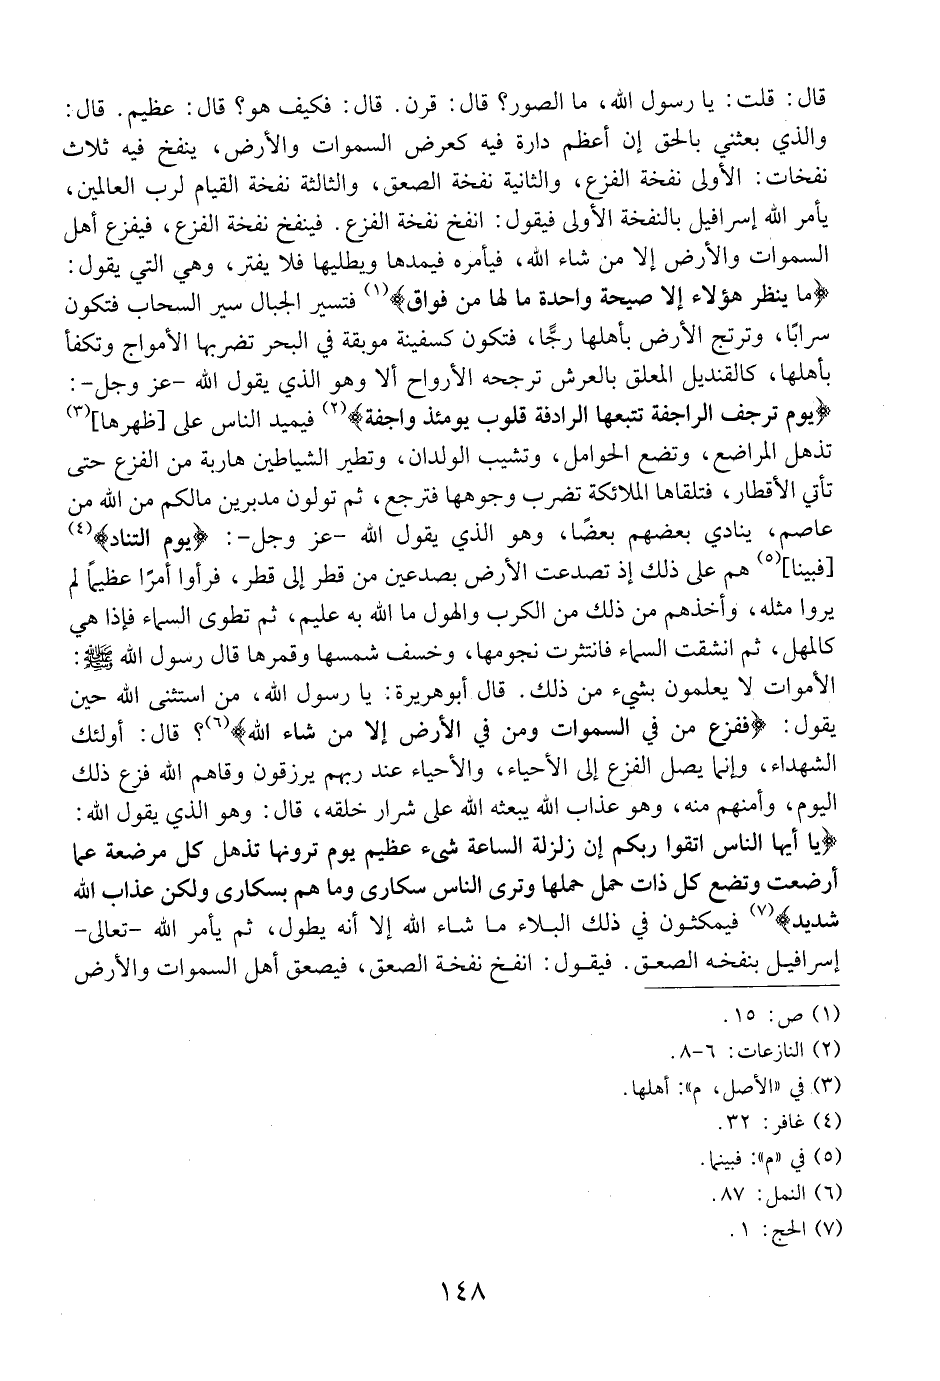 قال: قلت: يا رسول الله، ما الصور؟ قال: قرن. قال: فكيف هو؟ قال: عظيم. قال:
والذي بعثني بالحق إن أعظم دارة فيه كعرض السموات والأرض، ينفخ فيه ثلاث
نفخات: الأولى نفخة الفزع، والثانية نفخة الصعق، والثالثة نفخة القيام لرب العالمين،
يأمر الله إسرافيل بالنفخة الأولى فيقول: انفخ نفخة الفزع. فينفخ نفخة الفزع، فيفزع أهل
السموات والأرض إلا من شاء الله، فيأمره فيمدها ويطليها فلا يفتر، وهي التي يقول:
﴿ما ينظر هؤلاء إلا صيحة واحدة ما لها من فواق﴾(١) فتسير الجبال سير السحاب فتكون
سرابًا، وترتج الأرض بأهلها رجًّا، فتكون كسفينة موبقة في البحر تضربها الأمواج وتكفأ
بأهلها، كالقنديل المعلق بالعرش ترجحه الأرواح ألا وهو الذي يقول الله -عز وجل-:
﴿يوم ترجف الراجفة تتبعها الرادفة قلوب يومئذ واجفة﴾(٢) فيميد الناس على [ظهرها](٣)
تذهل المراضع، وتضع الحوامل، وتشيب الولدان، وتطير الشياطين هاربة من الفزع حتى
تأتي الأقطار، فتلقاها الملائكة تضرب وجوهها فترجع، ثم تولون مدبرين مالكم من الله من
عاصم، ينادي بعضهم بعضًا، وهو الذي يقول الله -عز وجل-: ﴿يوم التناد﴾(٤)
[فبينا](٥) هم على ذلك إذ تصدعت الأرض بصدعين من قطر إلى قطر، فرأوا أمرًا عظيماً لم
يروا مثله، وأخذهم من ذلك من الكرب والهول ما الله به عليم، ثم تطوى السماء فإذا هي
كالمهل، ثم انشقت السماء فانتثرت نجومها، وخسف شمسها وقمرها قال رسول الله ﷺ:
الأموات لا يعلمون بشيء من ذلك. قال أبوهريرة: يا رسول الله، من استثنى الله حين
يقول: ﴿ففزع من في السموات ومن في الأرض إلا من شاء الله﴾(٦)؟ قال: أولئك
الشهداء، وإنما يصل الفزع إلى الأحياء، والأحياء عند ربهم يرزقون وقاهم الله فزع ذلك
اليوم، وأمنهم منه، وهو عذاب الله يبعثه الله على شرار خلقه، قال: وهو الذي يقول الله:
﴿يا أيها الناس اتقوا ربكم إن زلزلة الساعة شيء عظيم يوم ترونها تذهل كل مرضعة عما
أرضعت وتضع كل ذات حمل حملها وترى الناس سكارى وما هم بسكارى ولكن عذاب الله
شديد﴾(٧) فيمكثون في ذلك البلاء ما شاء الله إلا أنه يطول، ثم يأمر الله -تعالى-
إسرافيل بنفخه الصعق. فيقول: انفخ نفخة الصعق، فيصعق أهل السموات والأرض
(١) ص: ١٥.
(٢) النازعات: ٦-٨.
(٣) في «الأصل، م»: أهلها.
(٤) غافر: ٣٢.
(٥) في «م»: فبينما.
(٦) النمل: ٨٧.
(٧) الحج: ١.
١٤٨